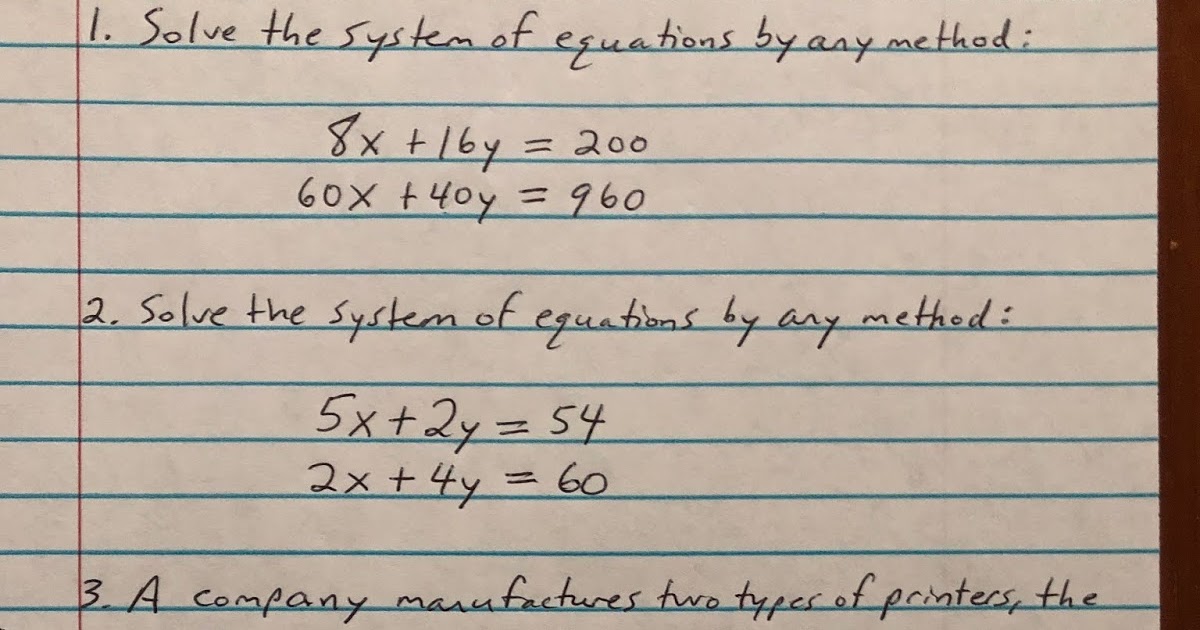 1. Solve the system of equations by any method:
8x + 16y = 200
60x + 40y = 960
2. Solve the system of equations by any method:
5x + 2y = 54
2x + 4y = 60
3. A company manufactures two types of printers, the